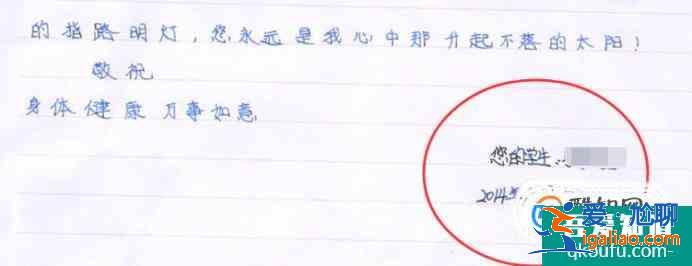 的指路明灯，您永远是我心中那升起不落的太阳！
敬祝
身体健康 万事如意
您的学生：
2014年
爱·尬聊
igaliao.com
qk5ufu.com